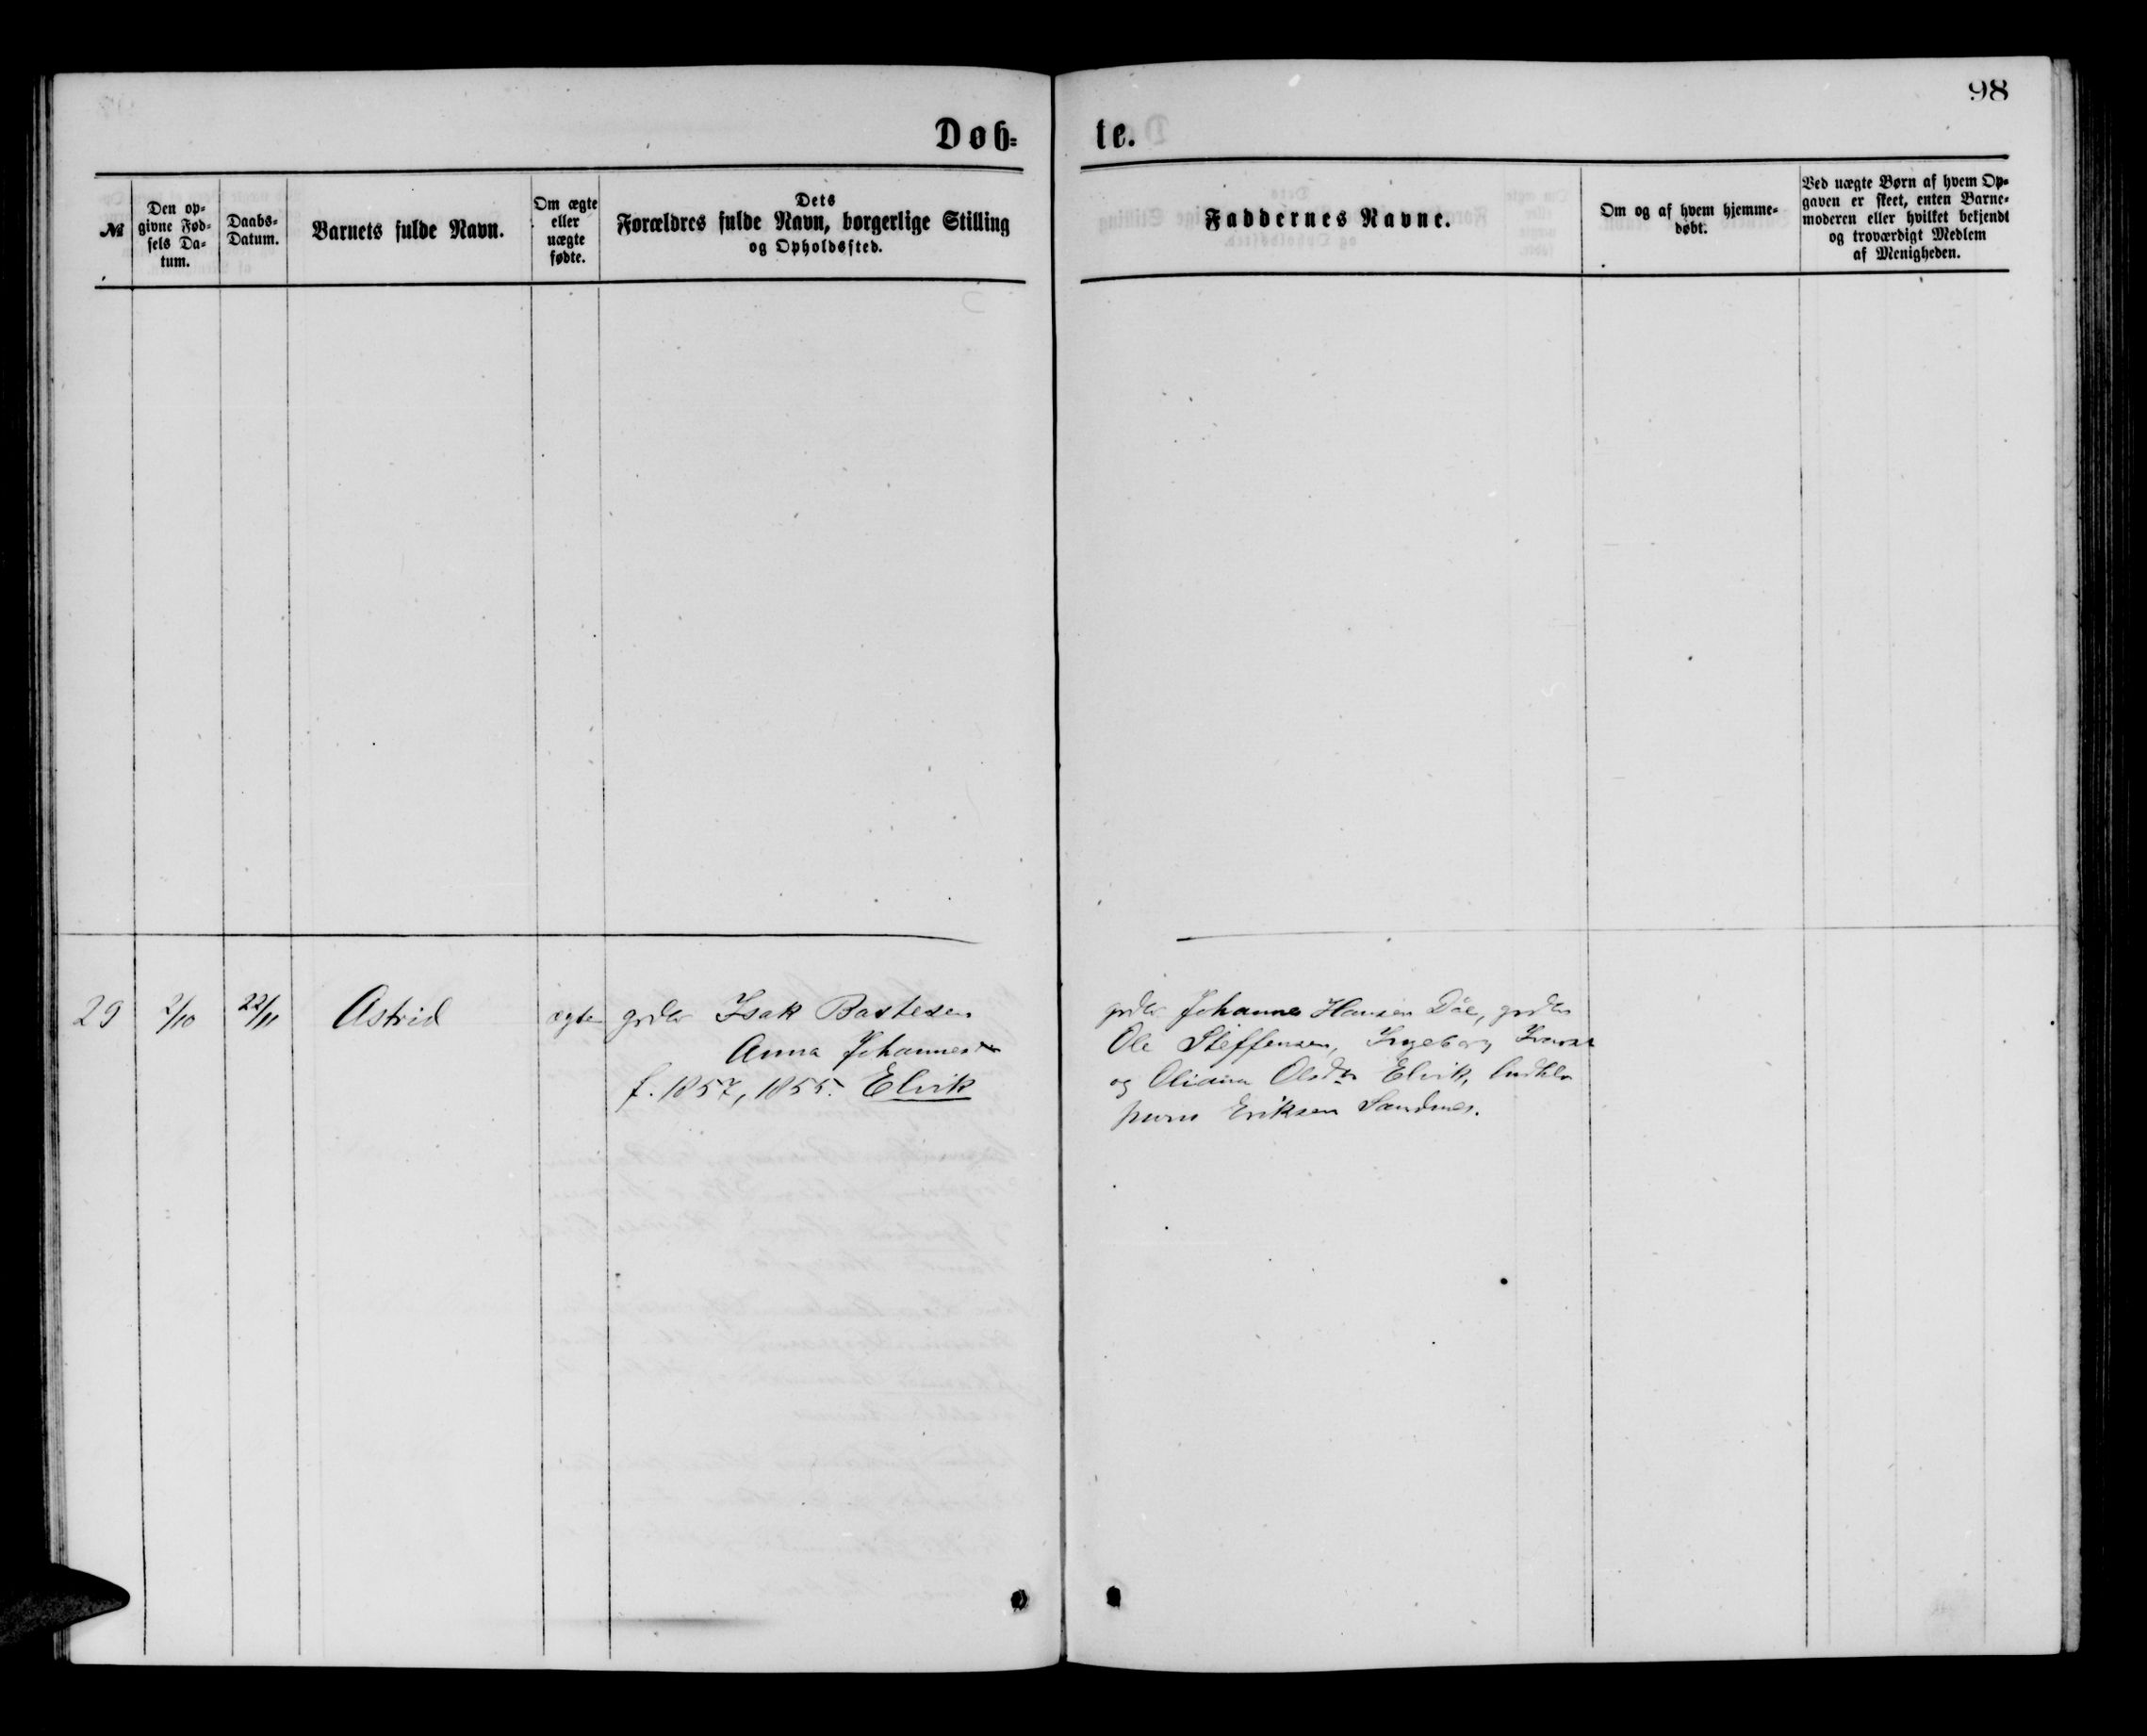 98
Døb-
te.
№
Den op-
givne Fød-
sels Da-
tum.
Daabs-
Datum.
Barnets fulde Navn.
Om ægte
eller
uægte
fødte.
Dets
Forældres fulde Navn, borgerlige Stilling
og Opholdssted.
Faddernes Navne.
Om og af hvem hjemme-
døbt.
Ved uægte Børn af hvem Op-
gaven er skeet, enten Barne-
moderen eller hvilket bekjendt
og troværdigt Medlem
af Menigheden.
29
2/10
22/11
Astrid
ægte
grdbr Isak Bastesen
Anna Johannesdr
f. 1857, 1855. Elvik
grdbr Johannes Hansen Døe, grdbr
Ole Steffensen, Ingeborg
og Oliana Olsdr Elvik,
Eriksen Sandnes.